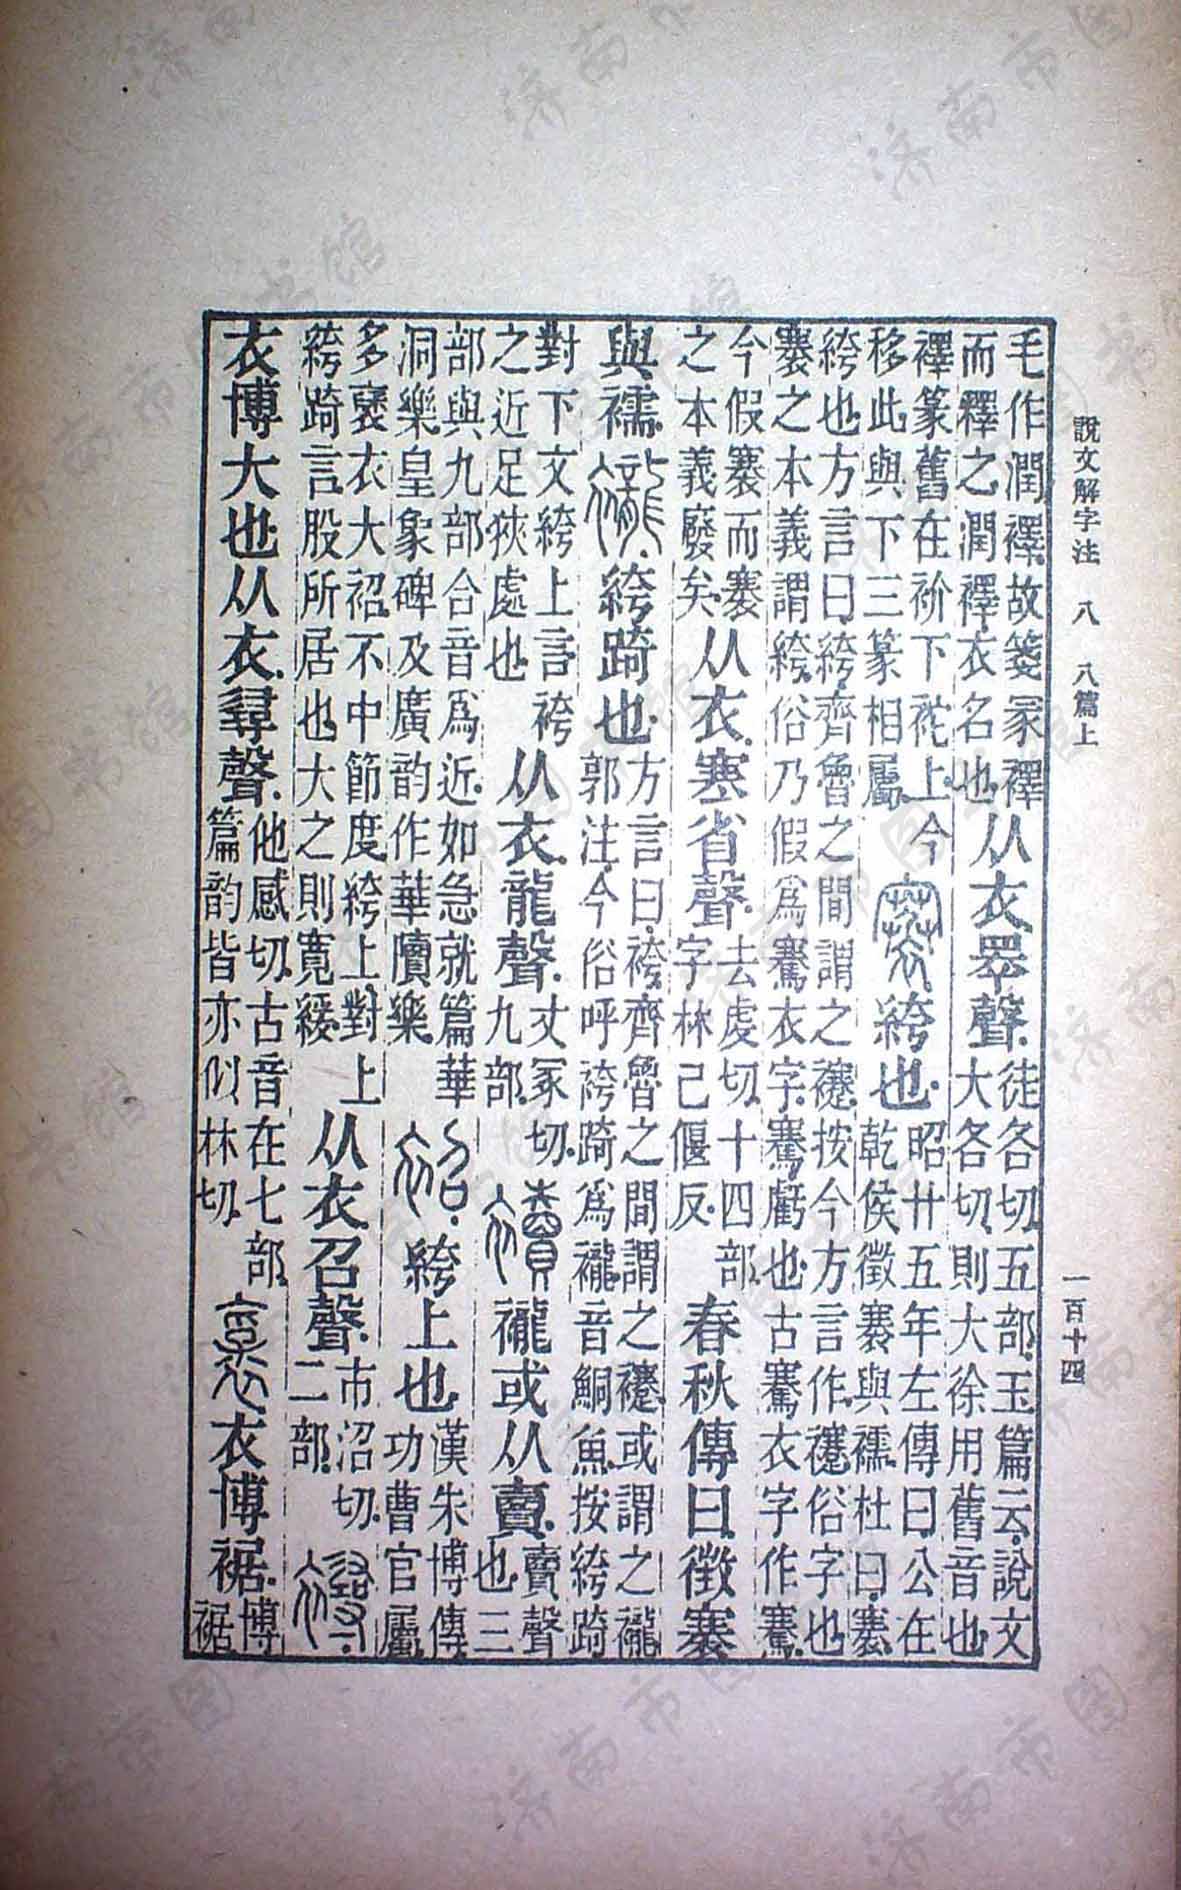 說文解字注 八 八篇上
一百十四
毛作潤襗故箋冢襗
而釋之潤襗衣名也
从衣睪聲
徒各切五部玉篇云說文
大各切則大徐用舊音也
襗篆舊在衸下袉上今
移此與下三篆相屬
褰絝也
昭廿五年左傳曰公在
乾侯徵褰與襦杜曰褰
絝也方言曰絝齊魯之間謂之按今方言作俗字也
褰之本義謂絝俗乃假爲騫衣字騫虧也古騫衣字作騫
今假褰而褰
之本義廢矣
从衣寒省聲
去虔切十四部
字林己偃反
春秋傳曰徵褰
與襦
襱絝踦也
方言曰袴齊魯之間謂之或謂之襱
郭注今俗呼袴踦爲襱音鮦魚按絝踦
對下文絝上言袴
之近足狹處也
从衣龍聲
丈冢切
九部
襩襱或从賣
賣聲
也三
部與九部合音爲近如急就篇華
洞樂皇象碑及廣韵作華牘樂
袑絝上也
漢朱博傳
功曹官屬
多襃衣大袑不中節度絝上對上
絝踦言股所居也大之則寬緩
从衣召聲
市沼切
二部
襑
衣博大也从衣尋聲
他感切古音在七部
篇韵皆亦似林切
襃衣博裾
博
裾